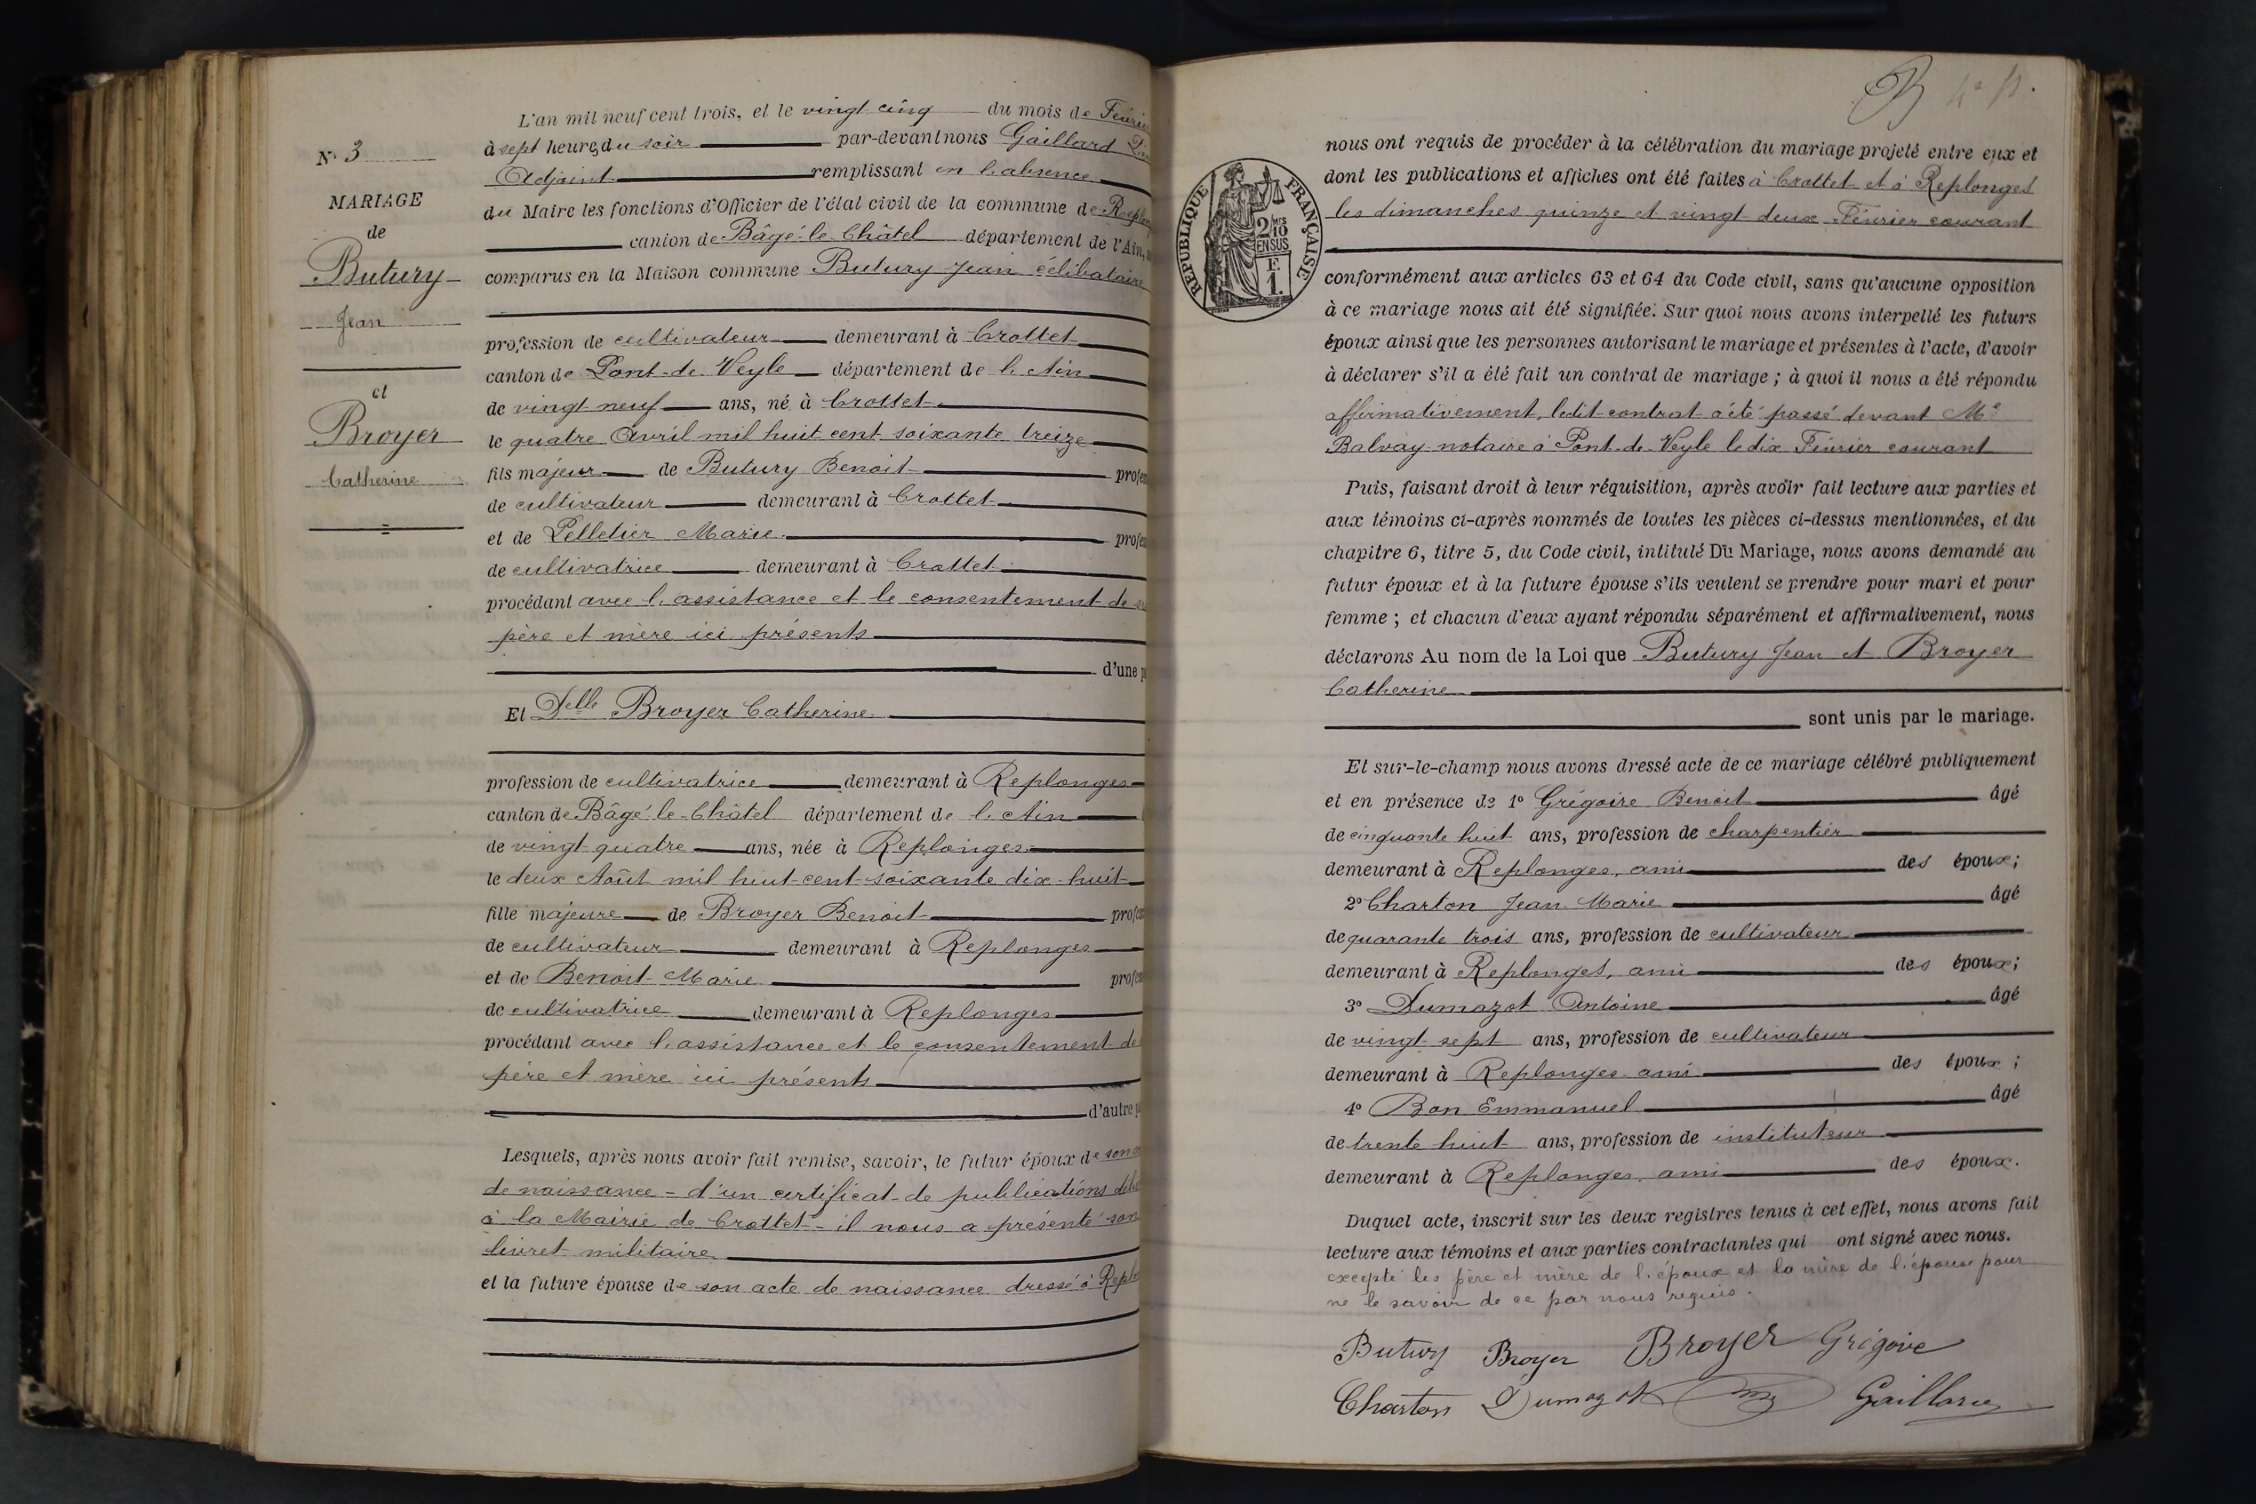 N° 3
MARIAGE
de
Butury
Jean
et
Broyer
Catherine
L'an mil neuf cent trois, et le vingt cinq du mois de Février
à sept heures du soir par-devant nous Gaillard
Adjoint remplissant en l'absence
du Maire les fonctions d'Officier de l'état civil de la commune de Replon
canton de Bâgé-le-Châtel département de l'Ain,
comparus en la Maison commune Butury Jean célibataire
profession de cultivateur demeurant à Crottet
canton de Pont-de-Veyle département de l'Ain
de vingt neuf ans, né à Crottet
le quatre Avril mil huit cent soixante treize
fils majeur de Butury Benoit profes
de cultivateur demeurant à Crottet
et de Pelletier Marie profes
de cultivatrice demeurant à Crottet
procédant avec l'assistance et le consentement de
père et mère ici présents
d'une p
Et Delle Broyer Catherine
profession de cultivatrice demeurant à Replonges
canton de Bâgé-le-Châtel département de l'Ain
de vingt quatre ans, née à Replonges
le deux Août mil huit cent soixante dix-huit
fille majeure de Broyer Benoit profes
de cultivateur demeurant à Replonges
et de Benoit Marie profes
de cultivatrice demeurant à Replonges
procédant avec l'assistance et le consentement de
père et mère ici présents
d'autre p
Lesquels, après nous avoir fait remise, savoir, le futur époux de son
de naissance = d'un certificat de publications
à la Mairie de Crottet = il nous a présenté son
livret militaire
et la future épouse de son acte de naissance dressé à Replo
B 4e
RÉPUBLIQUE FRANÇAISE
2/10 EN SUS
F.
1.
nous ont requis de procéder à la célébration du mariage projeté entre eux et
dont les publications et affiches ont été faites à Crottet et à Replonges
les dimanches quinze et vingt deux Février courant
conformément aux articles 63 et 64 du Code civil, sans qu'aucune opposition
à ce mariage nous ait été signifiée. Sur quoi nous avons interpellé les futurs
époux ainsi que les personnes autorisant le mariage et présentes à l'acte, d'avoir
à déclarer s'il a été fait un contrat de mariage ; à quoi il nous a été répondu
affirmativement, ledit contrat a été passé devant Me
Balvay notaire à Pont-de-Veyle le dix Février courant
Puis, faisant droit à leur réquisition, après avoir fait lecture aux parties et
aux témoins ci-après nommés de toutes les pièces ci-dessus mentionnées, et du
chapitre 6, titre 5, du Code civil, intitulé Du Mariage, nous avons demandé au
futur époux et à la future épouse s'ils veulent se prendre pour mari et pour
femme ; et chacun d'eux ayant répondu séparément et affirmativement, nous
déclarons Au nom de la Loi que Butury Jean et Broyer
Catherine
sont unis par le mariage.
Et sur-le-champ nous avons dressé acte de ce mariage célébré publiquement
et en présence de 1° Grégoire Benoit âgé
de cinquante huit ans, profession de charpentier
demeurant à Replonges, ami des époux ;
2° Charton Jean Marie âgé
de quarante trois ans, profession de cultivateur
demeurant à Replonges, ami des époux ;
3° Dumazot Antoine âgé
de vingt sept ans, profession de cultivateur
demeurant à Replonges ami des époux ;
4° Bon Emmanuel âgé
de trente huit ans, profession de instituteur
demeurant à Replonges, ami des époux.
Duquel acte, inscrit sur les deux registres tenus à cet effet, nous avons fait
lecture aux témoins et aux parties contractantes qui ont signé avec nous.
excepté les père et mère de l'époux et la mère de l'épouse pour
ne le savoir de ce par nous requis.
Butury Broyer Broyer Grégoire
Charton Dumazot Gaillard